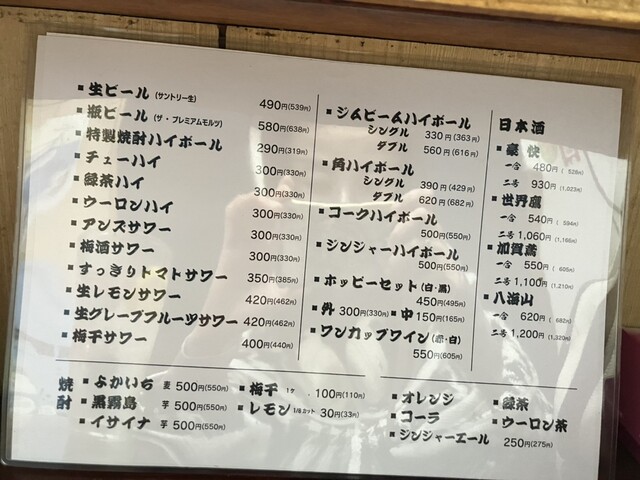 ▪生ビール (サントリー生) 490円(539円)
▪瓶ビール (ザ・プレミアムモルツ) 580円(638円)
▪特製焼酎ハイボール 290円(319円)
▪チューハイ 300円(330円)
▪緑茶ハイ 300円(330円)
▪ウーロンハイ 300円(330円)
▪アンズサワー 300円(330円)
▪梅酒サワー 300円(330円)
▪すっきりトマトサワー 350円(385円)
▪生レモンサワー 420円(462円)
▪生グレープフルーツサワー 420円(462円)
▪梅干サワー 400円(440円)
▪ジムビームハイボール
シングル 330円(363円)
ダブル 560円(616円)
▪角ハイボール
シングル 390円(429円)
ダブル 620円(682円)
▪コークハイボール
500円(550円)
▪ジンジャーハイボール
500円(550円)
▪ホッピーセット(白・黒)
450円(495円)
▪外 300円(330円) ▪中 150円(165円)
▪ワンカップワイン(赤・白)
550円(605円)
日本酒
▪豪快
一合 480円(528円)
二号 930円(1,023円)
▪世界鷹
一合 540円(594円)
二号 1,060円(1,166円)
▪加賀鳶
一合 550円(605円)
二号 1,100円(1,210円)
▪八海山
一合 620円(682円)
二号 1,200円(1,320円)
焼酎
▪よかいち 麦 500円(550円)
▪黒霧島 芋 500円(550円)
▪イサイナ 芋 500円(550円)
▪梅干 1ケ 100円(110円)
▪レモン 1/8カット 30円(33円)
▪オレンジ ▪緑茶
▪コーラ ▪ウーロン茶
▪ジンジャーエール 250円(275円)